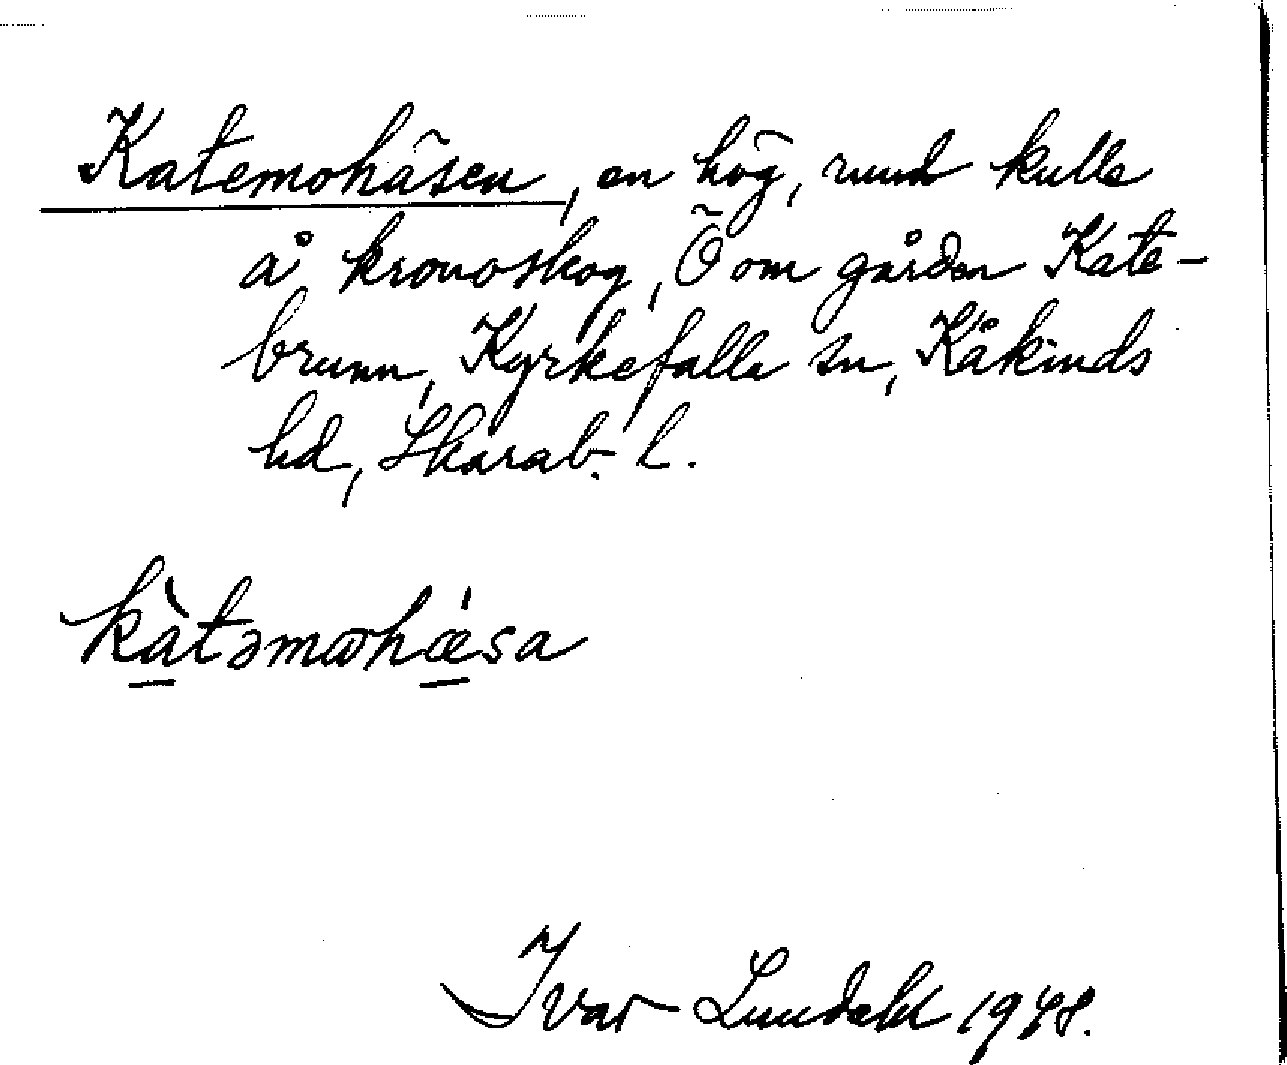 Katemohäsen, en hög, rund kulle
å kronoskog, Ö om gården Kate-
brunn, Kyrkefalla sn, Kåkinds
hd, Skarab. l.
kàtəmωhǽsa
Ivar Lundahl 1948.